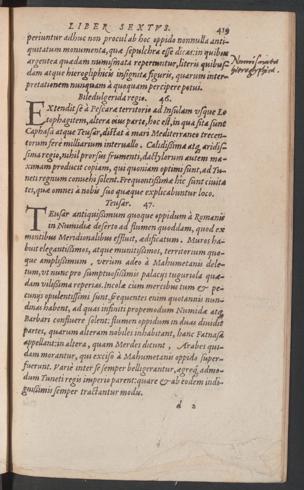 LIBER SEXTVS. 419
periuntur adhuc non procul ab hoc oppido nonnulla anti-
quitatum monumenta, quæ sepulchra esse dicas: in quibus
argentea quædam numismata reperiuntur, literis quibus-
dam atque hieroglyphicis insignita figuris, quarum inter-
pretationem nunquam à quoquam percipere potui.
Biledulgerid regio. 46.
Extendit se à Pescara territorio ad Insulam vsque Lo-
tophagitem, altera eius parte, hoc est, in qua sita sunt
Caphasa atque Teusar, distat à mari Mediterraneo trecen-
torum ferè milliarium interuallo. Calidissima atq; aridis-
sima regio, nihil prorsus frumenti, dactylorum autem ma-
ximam producit copiam, qui quoniam optimi sunt, ad Tu-
neti regnum conuehi solent. Frequentissimæ hîc sunt ciuita-
tes, quas omnes à nobis suo quæque explicabuntur loco.
Teusar. 47.
Teusar antiquissimum quoque oppidum à Romanis
in Numidiæ deserto ad flumen quoddam, quod ex
montibus Meridionalibus effluit, ædificatum. Muros ha-
buit elegantissimos, atque munitissimos, territorium quo-
que amplissimum, verùm adeo à Mahumetanis dele-
tum, vt nunc pro sumptuosissimis palacijs tuguriola quæ-
dam vilissima reperias. Incolæ cùm mercibus tum & pe-
cunijs opulentissimi sunt, frequentes enim quotannis nun-
dinas habent, ad quas infiniti propemodum Numidæ atq;
Barbari confluere solent: flumen oppidum in duas diuidit
partes, quarum alteram nobiles inhabitant, hanc Fatnasa
appellant: in altera, quam Merdes dicunt, Arabes qui-
dam morantur, qui exciso à Mahumetanis oppido super-
fuerunt. Variè inter se semper belligerantur, ægreq; admo-
dum Tuneti regis imperio parent: quare & ab eodem indi-
gnissimis semper tractantur modis.
d 2